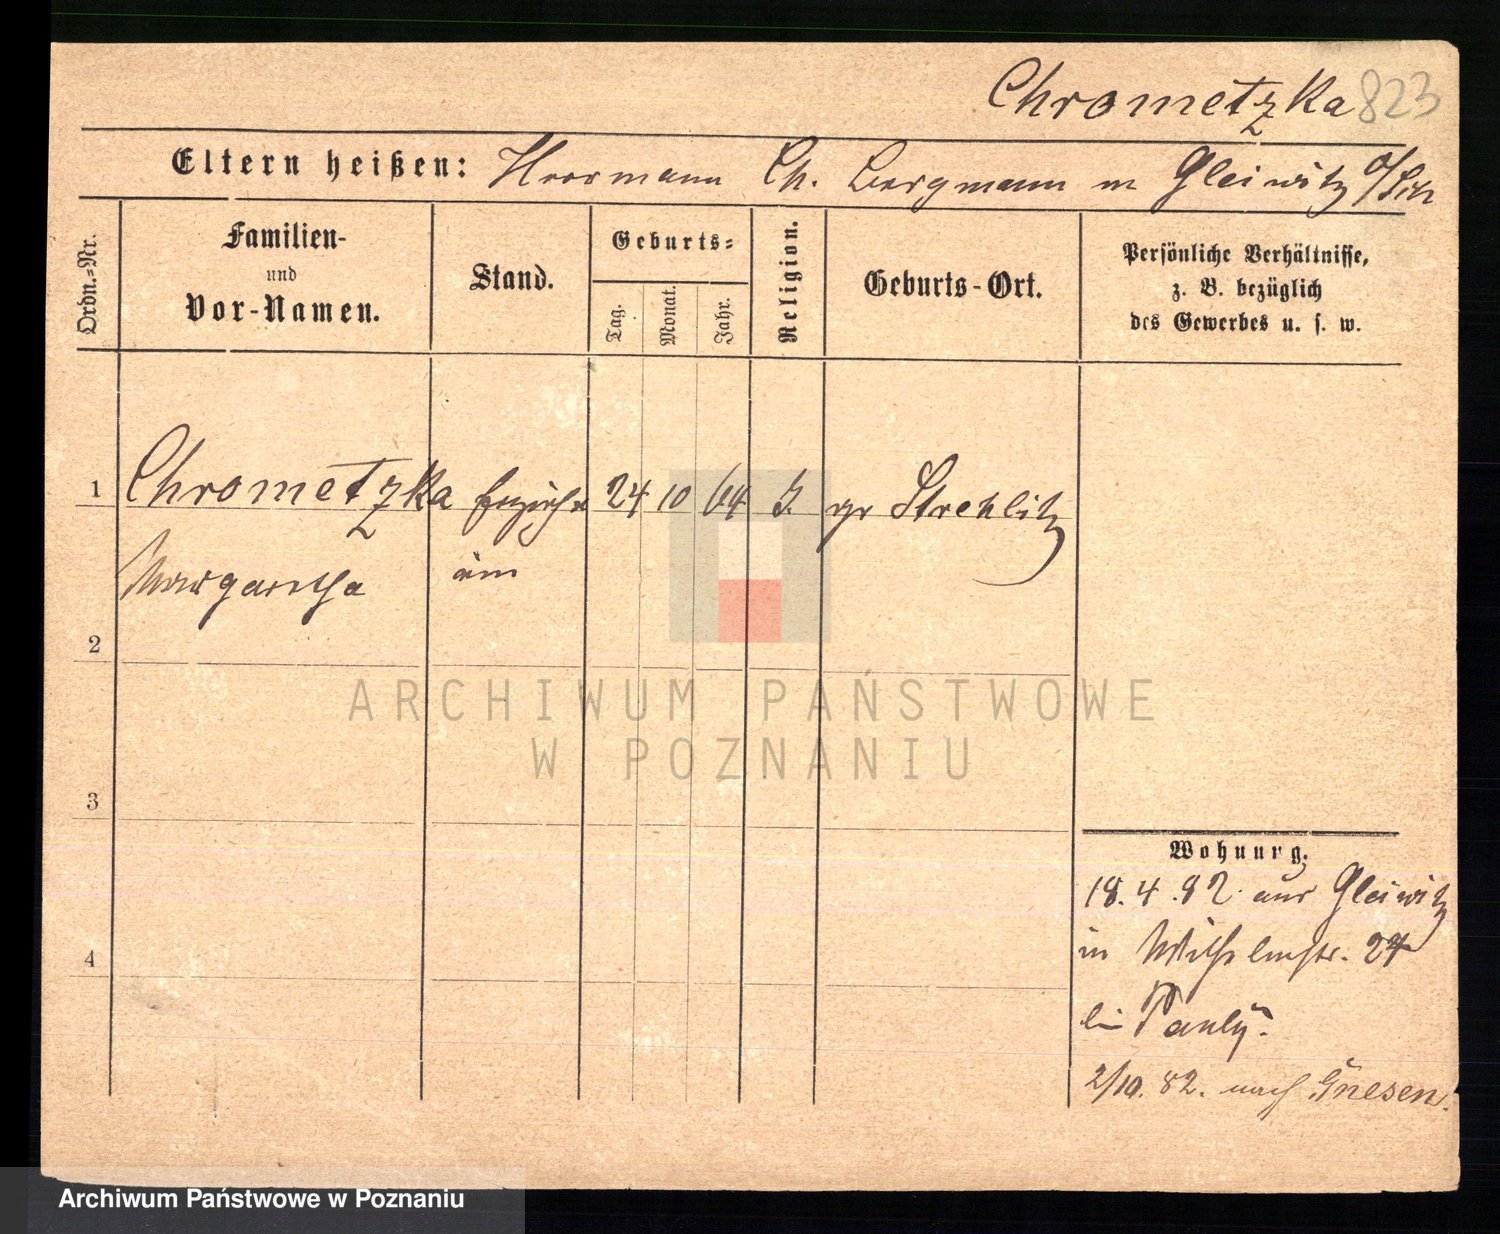 Chrometzka 823
Eltern heißen: Herrmann Ch. Bergmann in Gleiwitz o/Sch
Ordn.-Nr.
Familien-
und
Vor-Namen.
Stand.
Geburts-
Tag.
Monat.
Jahr.
Religion.
Geburts-Ort.
Persönliche Verhältnisse,
z. B. bezüglich
des Gewerbes u. s. w.
1 Chrometzka Erzieh 24 10 64 J. gr Strehlitz
Margaretha
2
3
4
Wohnung.
18.4.82 aus Gleiwitz
in Wilhelmstr. 24
bei Pauly.
2/10.82. nach Gnesen.
ARCHIWUM PAŃSTWOWE
W POZNANIU
Archiwum Państwowe w Poznaniu